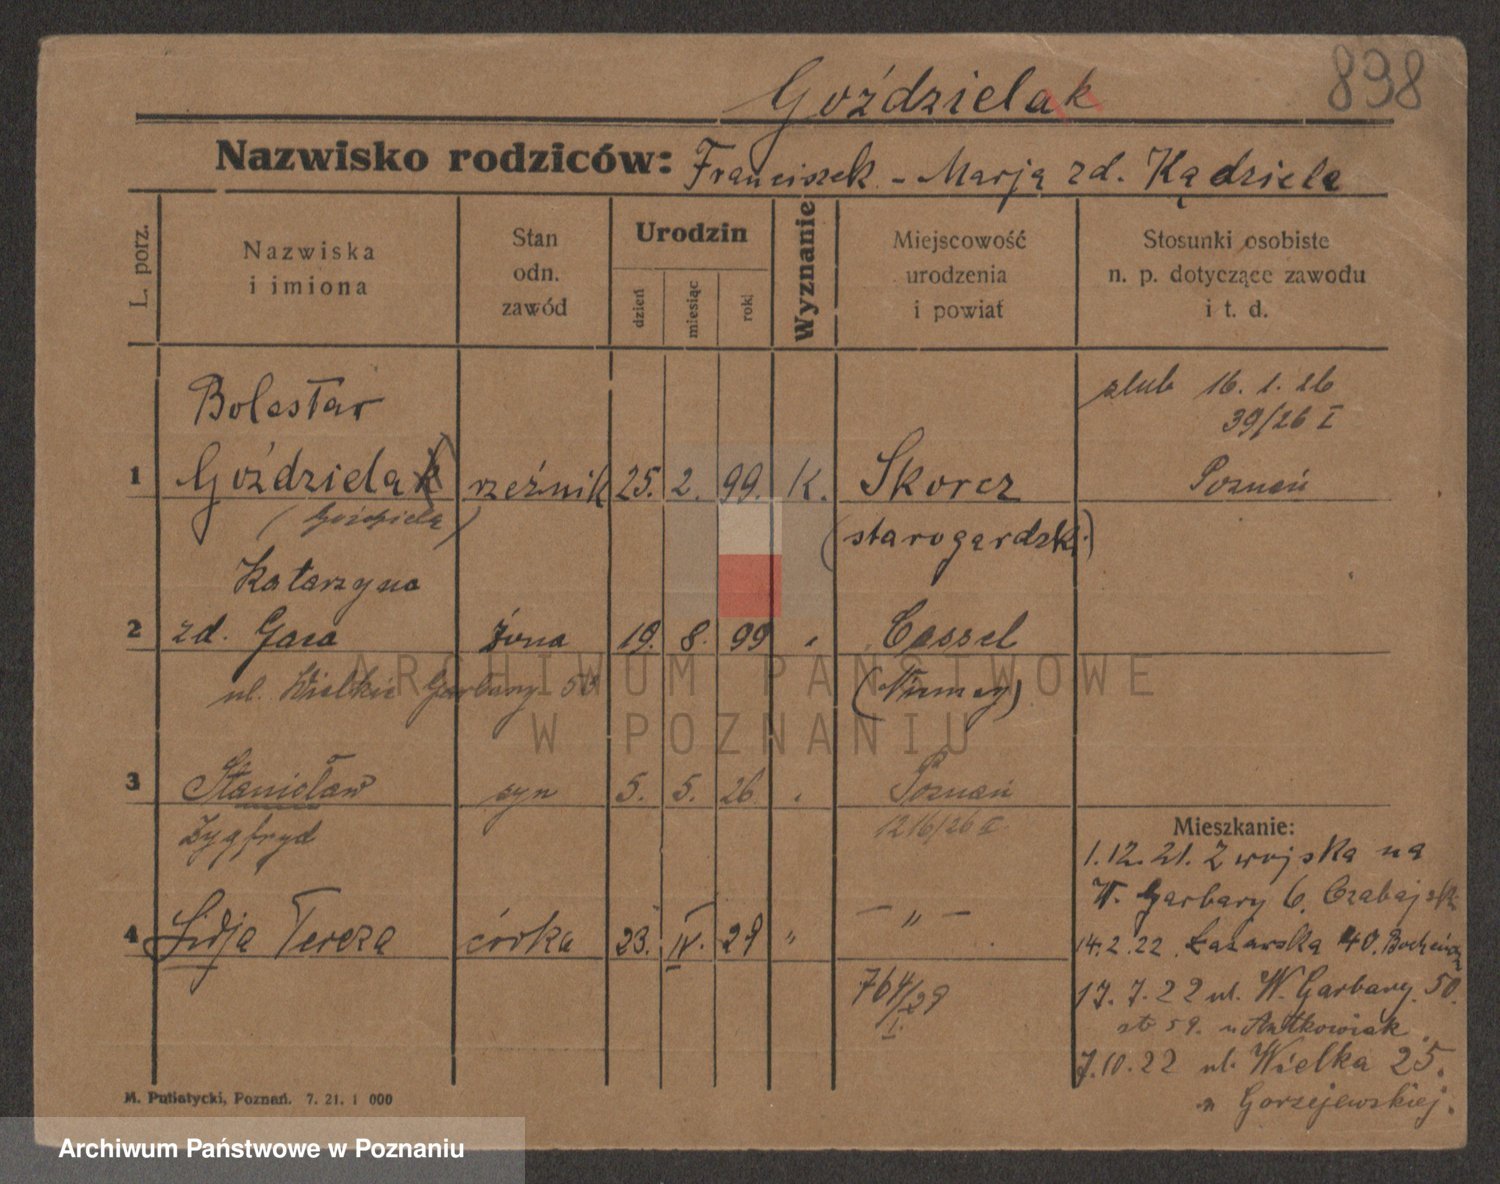 Goździelak
898
Nazwisko rodziców: Franciszek - Marją zd. Kądziela
L. porz.
Nazwiska
i imiona
Stan
odn.
zawód
Urodzin
dzień
miesiąc
rok
Wyznanie
Miejscowość
urodzenia
i powiat
Stosunki osobiste
n. p. dotyczące zawodu
i t. d.
Bolesław
ślub 16. 1. 26
39/26 I
1 Goździelak rzeźnik 25. 2. 99. K. Skorcz Poznań
(Goździela) (starogardzki)
Katarzyna
2 zd. Gaca żona 19. 8. 99 " Cassel
ul. Wielkie Garbary 53 (Niemcy)
3 Stanisław syn 5. 5. 26 " Poznań
Zygfryd 1216/26
4 Lidja Tereza córka 23. IV. 29 " — " —
764/29
I.
Mieszkanie:
1.12.21. Z wojska na
W. Garbary 6.
14.2.22. Łazarska 40.
17.7.22 ul. W. Garbary 50.
59. u Antkowiak
7.10.22 ul. Wielka 25.
u Gorzejewskiej.
M. Putiatycki, Poznań. 7. 21. 1 000
ARCHIWUM PAŃSTWOWE
W POZNANIU
Archiwum Państwowe w Poznaniu